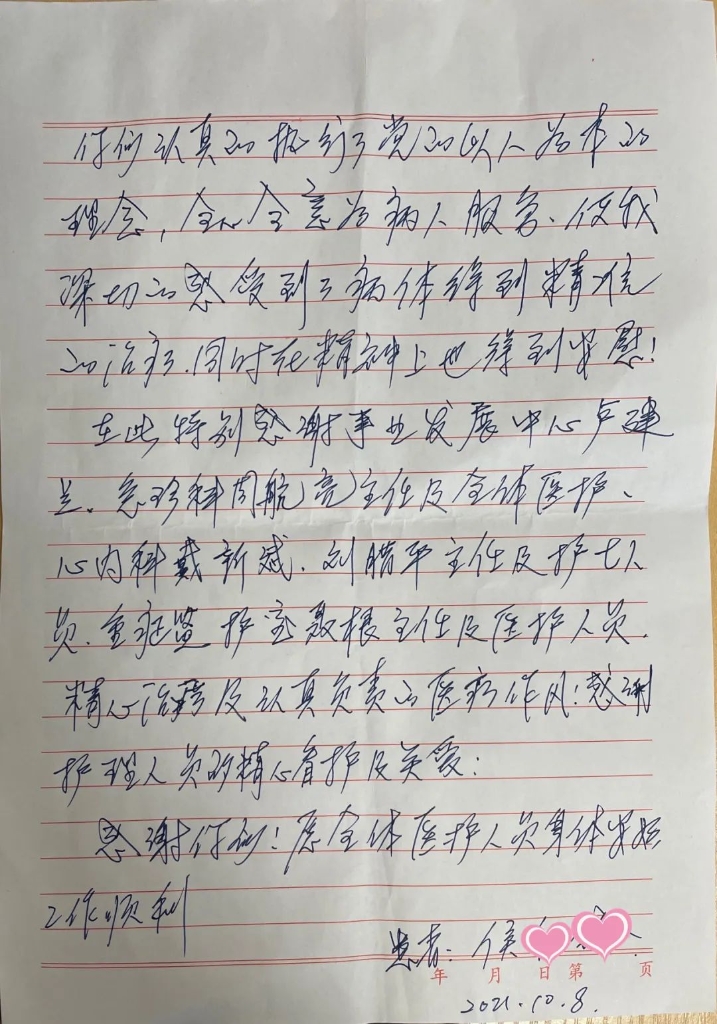 你们认真的执行了党的以人为本的
理念，全心全意为病人服务、使我
深切的感受到了病体得到精准
的治疗、同时在精神上也得到安慰！
在此特别感谢事业发展中心卢建
兰、急诊科周航(亮)主任及全体医护、
心内科戴新斌、刘腊平主任及护士人
员、重症监护室聂根主任及医护人员、
精心治疗及认真负责的医疗作风！感谢
护理人员的精心看护及关爱；
感谢你们！愿全体医护人员身体安好
工作顺利
患者：侯
年 月 日 第 页
2021.10.8.